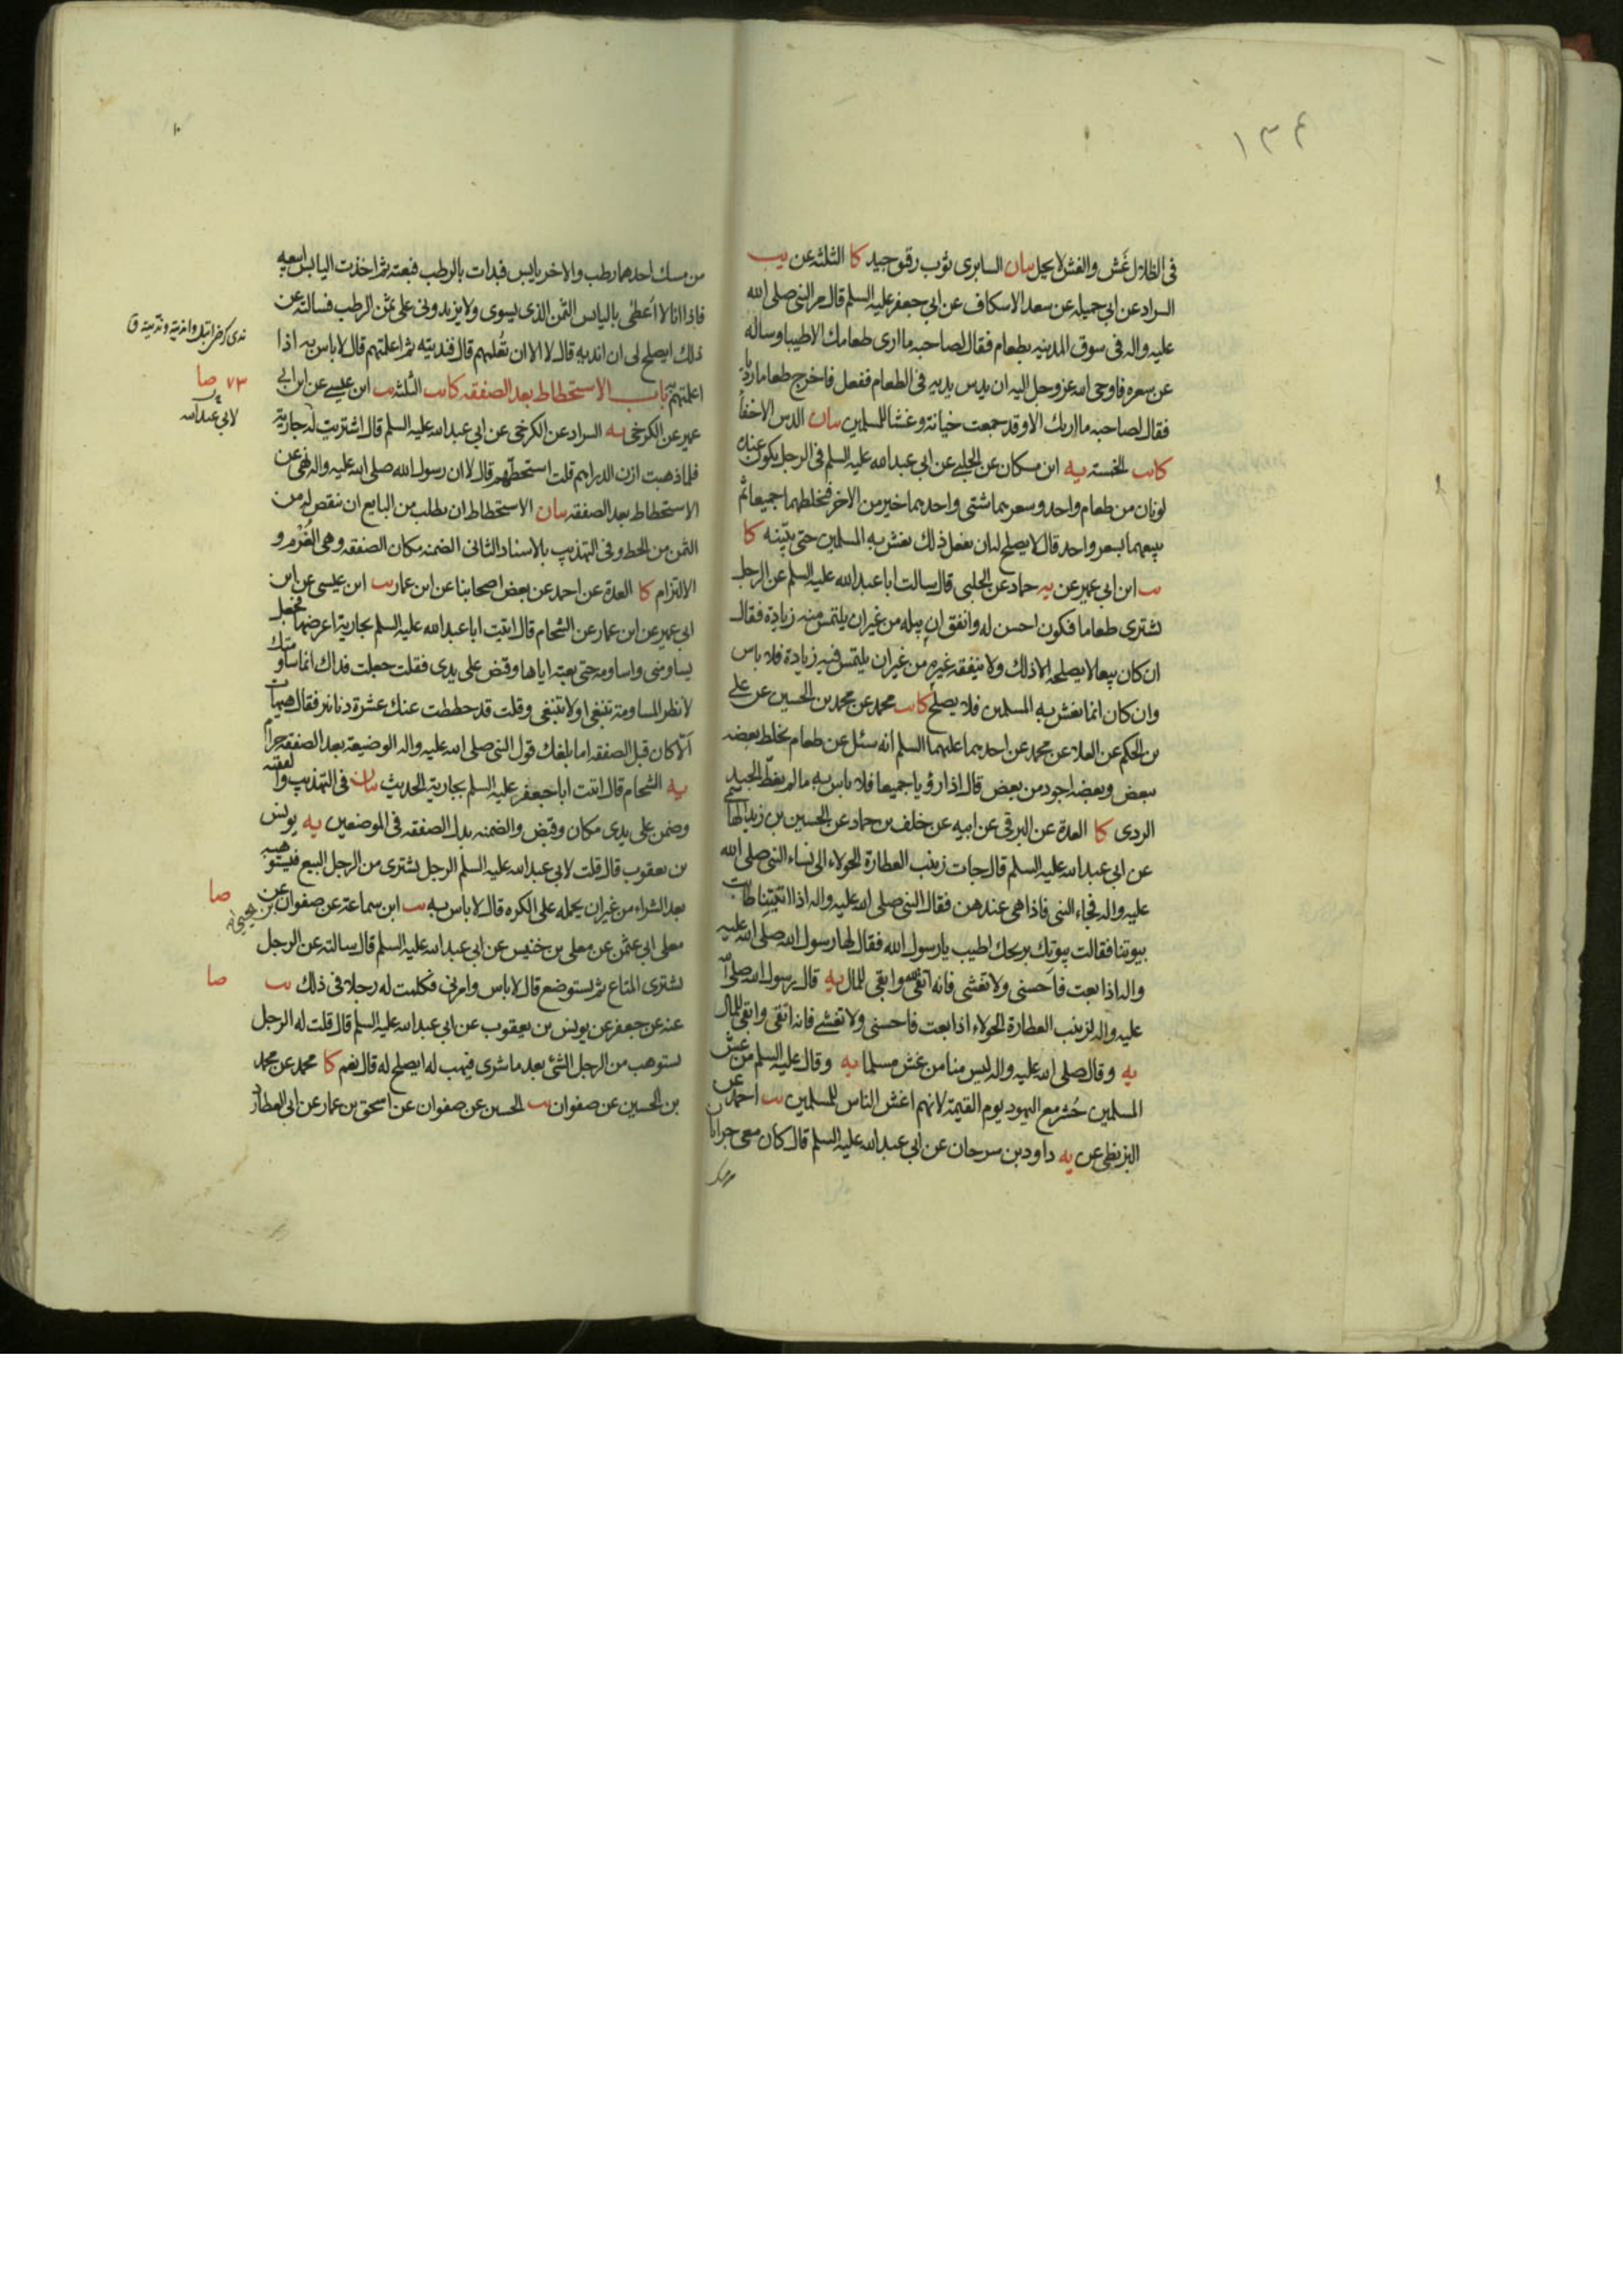 ١٣٤
في الظلال غش والغش لا يحل بيان السابري ثوب رقيق جيد كا الثلثة عن يب
السراد عن ابي جميله عن سعد الاسكاف عن ابي جعفر عليه السلم قال مر النبي صلى الله
عليه واله في سوق المدينه بطعام فقال لصاحبه ما ارى طعامك الا طيبا وساله
عن سعره فاوحى الله عز وجل اليه ان يدس يديه في الطعام ففعل فاخرج طعاما رديا
فقال لصاحبه ما اريك الا وقد جمعت خيانة وغشا للمسلمين بيان الدس الاخفأ
كا يب الخمسة يه ابن مسكان عن الحلبي عن ابي عبد الله عليه السلم في الرجل يكون عنده
لونان من طعام واحد وسعرهما شتى واحدهما خير من الاخر فيخلطهما جميعا ثم
يبيعهما بسعر واحد قال لا يصلح له ان يفعل ذلك يغش به المسلمين حتى يبينه كا
يب ابن ابي عمير عن يه حماد عن الحلبي قال سالت ابا عبد الله عليه السلم عن الرجل
يشتري طعاما فيكون احسن له وانفق ان يبله من غير ان يلتمس منه زيادة فقال
ان كان بيعا لا يصلحه الا ذلك ولا ينفقه غيره من غير ان يلتمس فيه زيادة فلا باس
وان كان انما يغش به المسلمين فلا يصلح كا يب محمد عن محمد بن الحسين عن علي
بن الحكم عن العلا عن محمد عن احدهما عليهما السلم انه سئل عن طعام يخلط بعضه
ببعض وبعضه اجود من بعض قال اذا رؤيا جميعا فلا باس به ما لم يغط الجيد
الردى كا العدة عن البرقي عن ابيه عن خلف بن حماد عن الحسين بن زيد الهاشمي
عن ابي عبد الله عليه السلم قال جات زينب العطارة الحولاء الى نساء النبي صلى الله
عليه واله فجاء النبي فاذا هي عندهن فقال النبي صلى الله عليه واله اذا اتيتنا طابت
بيوتنا فقالت بيوتك بريحك اطيب يا رسول الله فقال لها رسول الله صلى الله عليه
واله اذا بعت فاحسني ولا تغشي فانه اتقى لله وابقى للمال يه قال رسول الله صلى الله
عليه واله لزينب العطارة الحولاء اذا بعت فاحسني ولا تغشي فانه اتقى وابقى للمال
يه وقال صلى الله عليه واله ليس منا من غش مسلما يه وقال عليه السلم من غش
المسلمين حشر مع اليهود يوم القيمة لانهم اغش الناس للمسلمين يب احمد عن
البزنطي عن يه داود بن سرحان عن ابي عبد الله عليه السلم قال كان معي جرابان
من مسك احدهما رطب والاخر يابس فبدات بالرطب فبعته ثم اخذت اليابس ابيعه
فاذا انا لا اعطى باليابس الثمن الذي يسوى ولا يزيدوني على ثمن الرطب فسالته عن
ذلك ايصلح لي ان انديه قال لا الا ان تعلمهم قال فنديته ثم اعلمتهم قال لا باس به اذا
اعلمتهم باب الاستحطاط بعد الصفقه كا يب الثلثة يب ابن عيسى عن ابن ابي
عمير عن الكرخي يه السراد عن الكرخي عن ابي عبد الله عليه السلم قال اشتريت له جارية
فلما ذهبت ازن الدراهم قلت استحطهم قال لا ان رسول الله صلى الله عليه واله نهى عن
الاستحطاط بعد الصفقه بيان الاستحطاط ان يطلب من البايع ان ينقص له من
الثمن من الحط وفي التهذيب بالاسناد الثاني الضمنه مكان الصفقه وهي الغرم و
الالتزام كا العدة عن احمد عن بعض اصحابنا عن ابن عمار يب ابن عيسى عن ابن
ابي عمير عن ابن عمار عن الشحام قال اتيت ابا عبد الله عليه السلم بجارية اعرضها فجعل
يساومني واساومه حتى بعته اياها وقبض على يدي فقلت جعلت فداك انما ساومتك
لانظر المساومة تنبغي او لا تنبغي وقلت قد حططت عنك عشرة دنانير فقال هيهات
الا كان قبل الصفقه اما بلغك قول النبي صلى الله عليه واله الوضيعة بعد الصفقة حرام
يه الشحام قال اتيت ابا جعفر عليه السلم بجارية الحديث بيان في التهذيب والفقيه
وضمن على يدي مكان وقبض والضمنه بدل الصفقه في الموضعين يه يونس
بن يعقوب قال قلت لابي عبد الله عليه السلم الرجل يشتري من الرجل البيع فيستوهبه
بعد الشراء من غير ان يحمله على الكره قال لا باس به يب ابن سماعة عن صفوان عن
معلى ابي عثمن عن معلى بن خنيس عن ابي عبد الله عليه السلم قال سالته عن الرجل
يشتري المتاع ثم يستوضع قال لا باس وامرني فكلمت له رجلا في ذلك يب
عنه عن جعفر عن يونس بن يعقوب عن ابي عبد الله عليه السلم قال قلت له الرجل
يستوهب من الرجل الشئ بعد ما يشري فيهب له ايصلح له قال نعم كا محمد عن محمد
بن الحسين عن صفوان يب الحسين عن صفوان عن اسحق بن عمار عن ابي العطارد
ندي كرضي ابتل وانديته ونديته ق
٧٣ صا
لابي عبد الله
صا
بن يحيى
صا